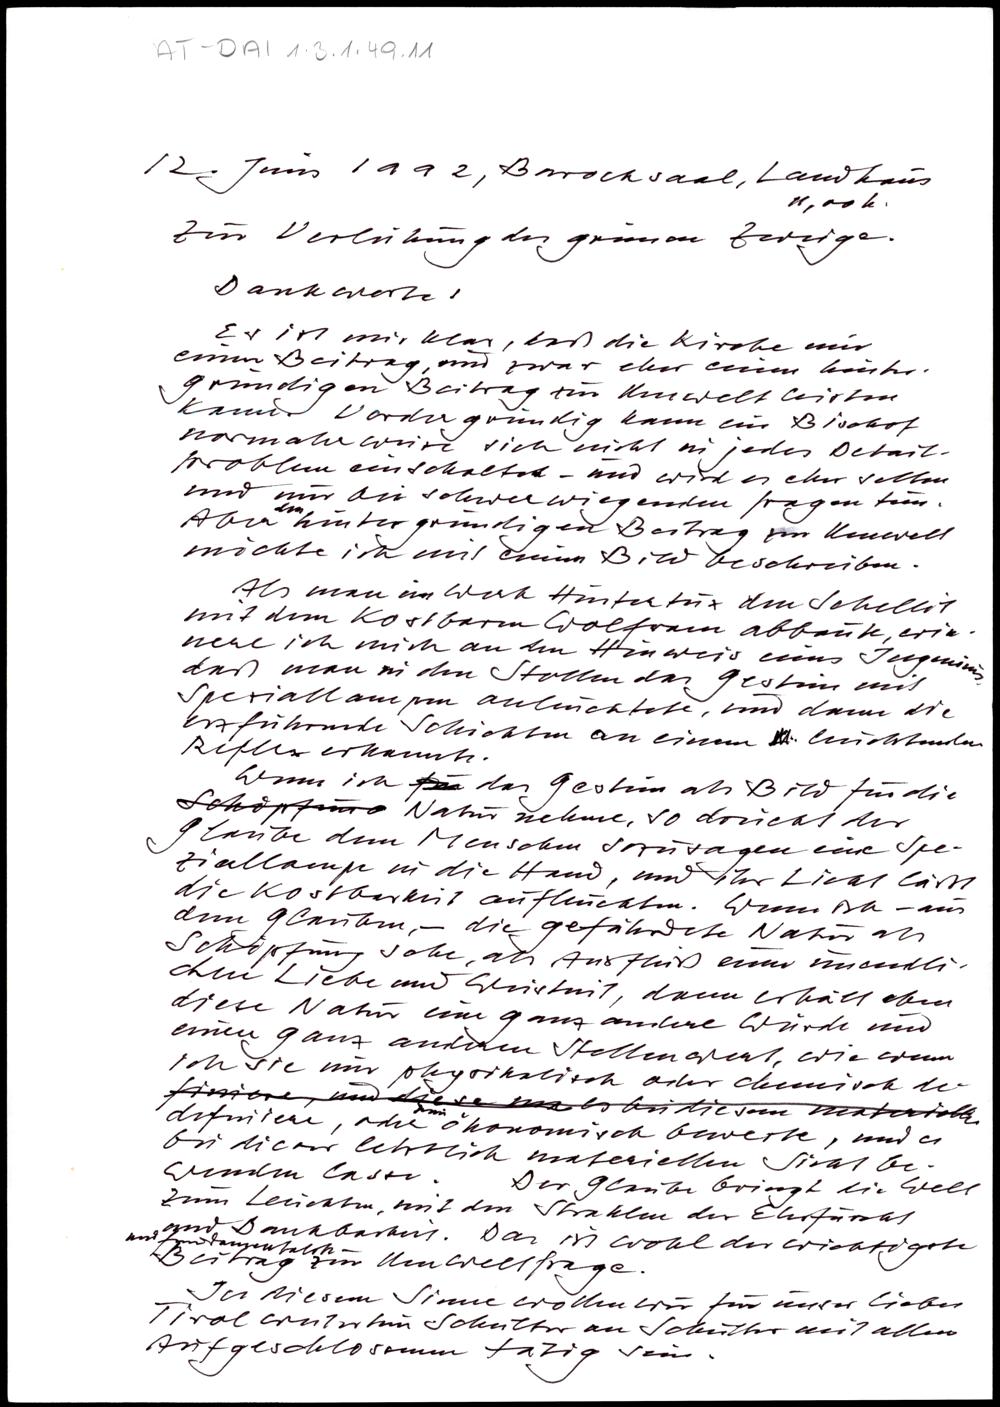 AT-DAI 1.3.1.49.11
12. Juni 1992, Barocksaal, Landhaus
11,00 h.
Zur Verleihung des grünen Zweiges.
Dankworte!
Es ist mir klar, daß die Kirche nur
einen Beitrag, und zwar eher einen hinter-
gründigen Beitrag zur Umwelt leisten
kann. Vordergründig kann ein Bischof
normalerweise sich nicht in jedes Detail-
problem einschalten - und wird es eher selten
und nur bei schwerwiegenden Fragen tun.
Aber den hintergründigen Beitrag zur Umwelt
möchte ich mit einem Bild beschreiben.
Als man im Werk Hintertux den Schellit
mit dem kostbaren Wolfram abbaute, erin-
nere ich mich an den Hinweis eines Ingenieurs,
daß man in den Stollen das Gestein mit
Speziallampen anleuchtete, und dann die
erzführende Schichten an einem leuchtenden
Reflex erkannte.
Wenn ich das Gestein als Bild für die
Schöpfung Natur nehme, so drückt der
Glaube dem Menschen sozusagen eine Spe-
ziallampe in die Hand, und ihr Licht läßt
die Kostbarkeit aufleuchten. Wenn ich - aus
dem Glauben, - die gefährdete Natur als
Schöpfung sehe, als Ausfluß einer unendli-
chen Liebe und Weisheit, dann erhält eben
diese Natur eine ganz andere Würde und
einen ganz anderen Stellenwert, wie wenn
ich sie nur physikalisch oder chemisch de-
finiere, und diese es bei diesem materielle
definiere, oder nur ökonomisch bewerte, und es
bei dieser letztlich materiellen Sicht be-
wenden lasse. Der Glaube bringt die Welt
zum Leuchten, mit den Strahlen der Ehrfurcht
und Dankbarkeit. Das ist wohl der wichtigste
und fundamentalste
Beitrag zur Umweltfrage.
In diesem Sinne wollen wir für unser liebes
Tirol weiterhin Schulter an Schulter mit allen
Aufgeschlossenen tätig sein.